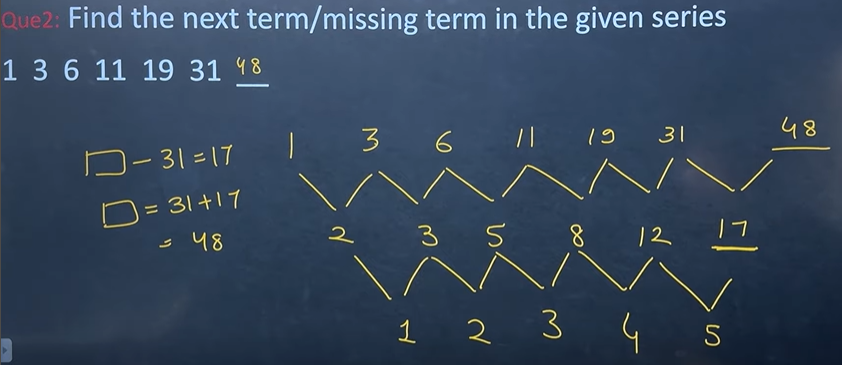 Que2: Find the next term/missing term in the given series
1 3 6 11 19 31 48
□ - 31 = 17
□ = 31 + 17
= 48
1 3 6 11 19 31 48
2 3 5 8 12 17
1 2 3 4 5